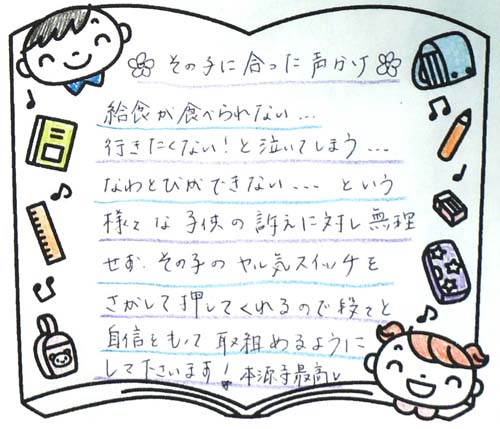 その子に合った声かけ
給食が食べられない…
行きたくない！と泣いてしまう…
なわとびができない… という
様々な子供の訴えに対し無理
せず、その子のヤル気スイッチを
さがして押してくれるので段々と
自信をもって取組めるように
して下さいます！本源寺最高